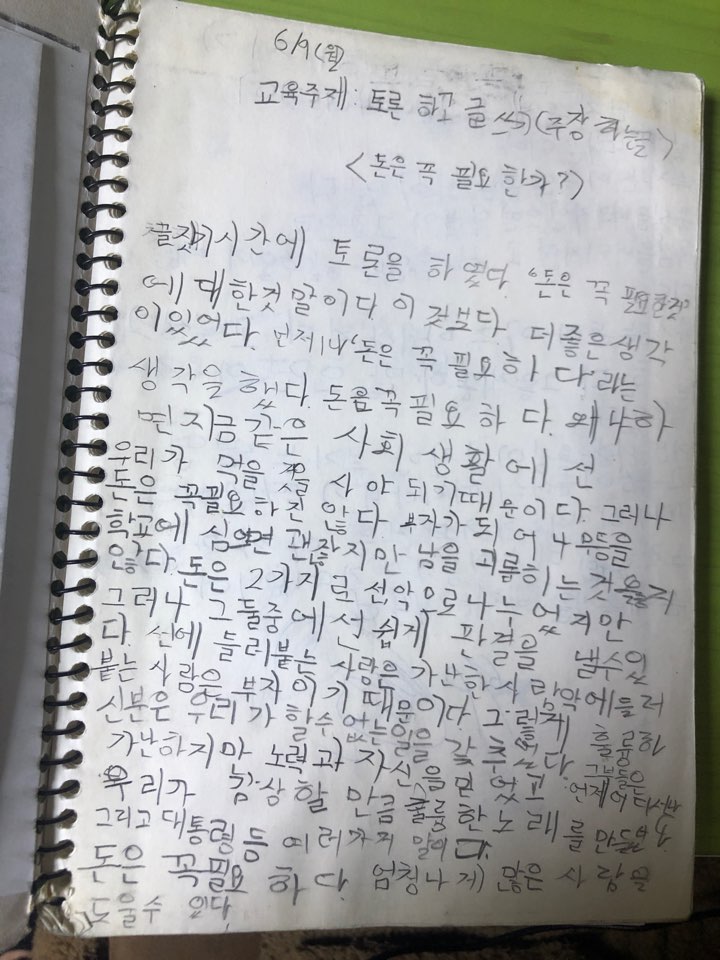 6/9(월
교육주제: 토론 하고 글 쓰기(주장 하는글)
<돈은 꼭 필요 한가?>
글짓기시간에 토론을 하였다. "돈은 꼭 필요한것"
에 대한것 말이다 이 것보다. 더좋은생각
이있었다. 먼저 나 '돈은 꼭 필요하 다'라는
생각을 했다. 돈은꼭필요 하 다. 왜나하
면 지금 같은 사회 생활에 선
우리가 먹을 것을 사야 되기때문이다. 그러나
돈은 꼭필요하진 않다 부자가 되어 나무등을
학교에 심으면 괜찮지만 남을 괴롭히는 것을
않다. 돈은 2가지로 선악 으로나누었지만
그러나 그 둘중 에선 쉽게 판결을 낼수있
다. 선에 들러붙는 사람은 가난한사람악에들러
붙는 사람은 부자 이기 때문이다 그렇게 훌륭한
신분은 우리 가 할수 없는일을 갖추었다. 그분들은
가난하지만 노력과 자신을 믿었고 언제어디서나
우리가 감상 할 만큼 훌륭한노래 를 만들
그리고 대통령 등 여러가지 말이다.
돈은 꼭필요 하다. 엄청나게 많은 사람을
도울수 있다.